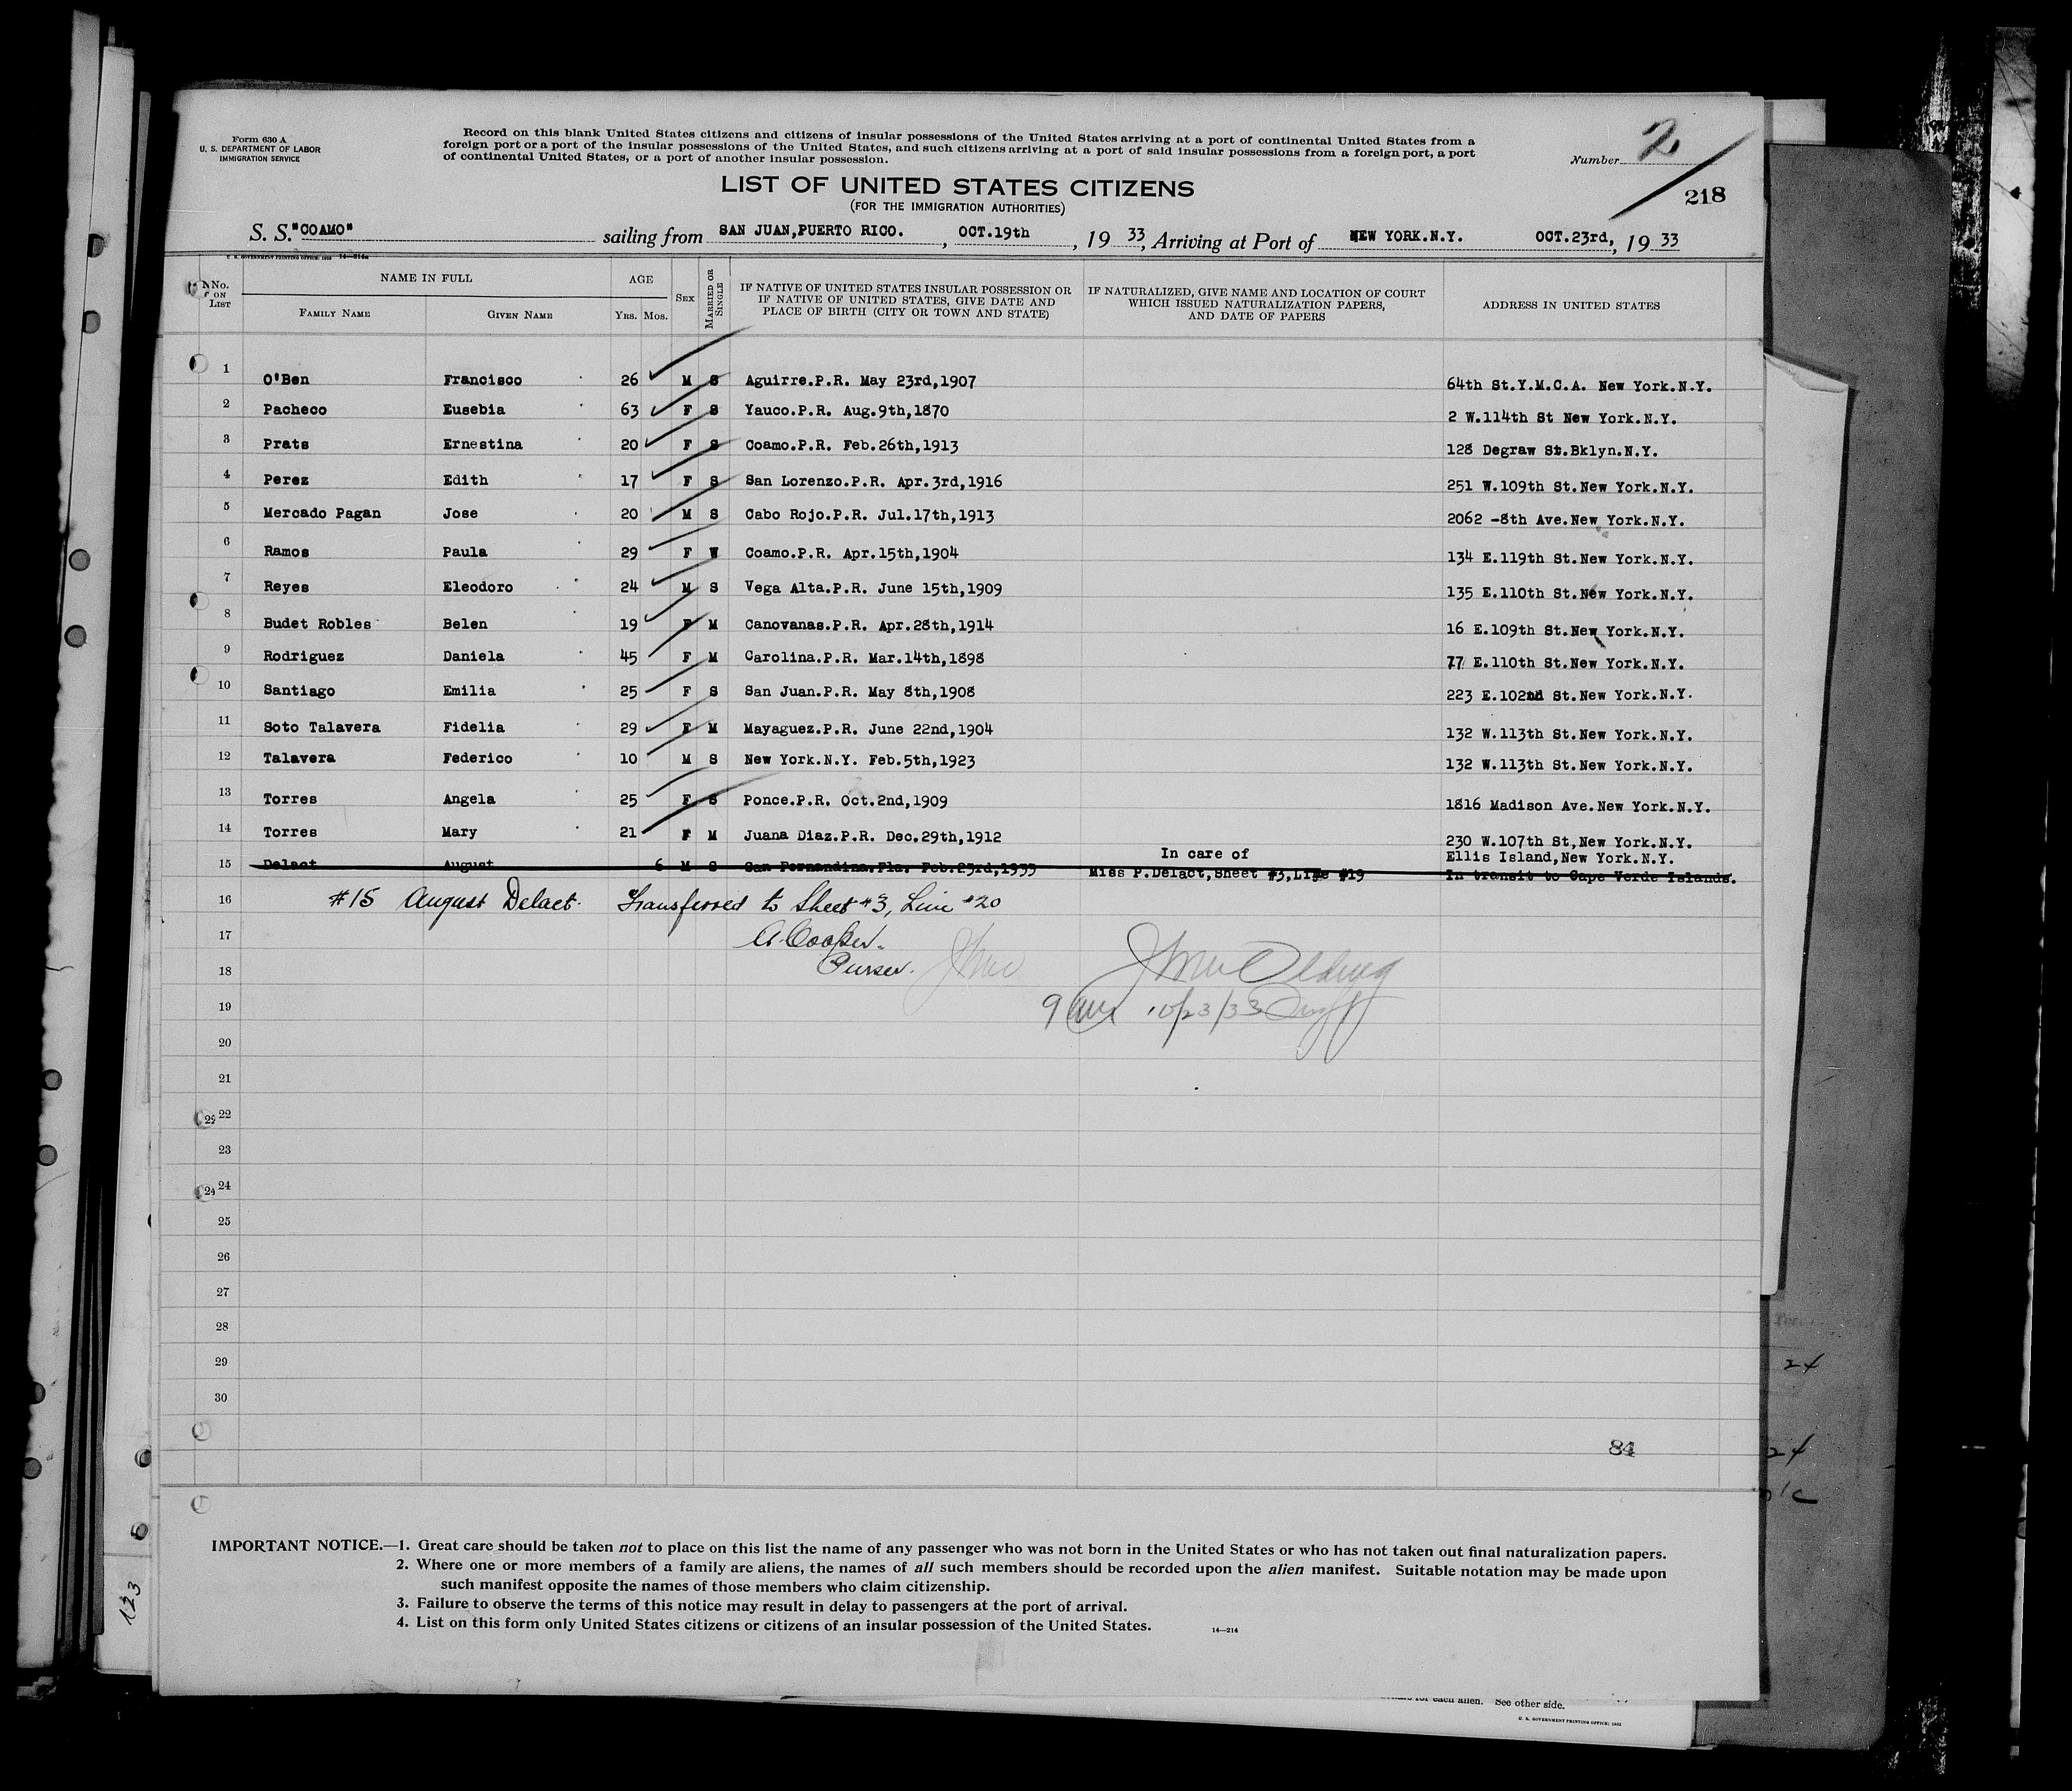 Form 630 A
U. S. DEPARTMENT OF LABOR
IMMIGRATION SERVICE
Record on this blank United States citizens and citizens of insular possessions of the United States arriving at a port of continental United States from a
foreign port or a port of the insular possessions of the United States, and such citizens arriving at a port of said insular possessions from a foreign port, a port
of continental United States, or a port of another insular possession.
Number 2
218
LIST OF UNITED STATES CITIZENS
(FOR THE IMMIGRATION AUTHORITIES)
S. S. "COAMO" sailing from SAN JUAN,PUERTO RICO. , OCT.19th , 19 33, Arriving at Port of NEW YORK.N.Y. OCT.23rd, 19 33
U. S. GOVERNMENT PRINTING OFFICE: 1932 14—214a
No. ON LIST NAME IN FULL AGE SEX MARRIED OR SINGLE IF NATIVE OF UNITED STATES INSULAR POSSESSION OR IF NATIVE OF UNITED STATES, GIVE DATE AND PLACE OF BIRTH (CITY OR TOWN AND STATE) IF NATURALIZED, GIVE NAME AND LOCATION OF COURT WHICH ISSUED NATURALIZATION PAPERS, AND DATE OF PAPERS ADDRESS IN UNITED STATES
FAMILY NAME GIVEN NAME YRS. MOS.
1 O'Ben Francisco 26 M S Aguirre.P.R. May 23rd,1907 64th St.Y.M.C.A. New York.N.Y.
2 Pacheco Eusebia 63 F S Yauco.P.R. Aug.9th,1870 2 W.114th St New York.N.Y.
3 Prats Ernestina 20 F S Coamo.P.R. Feb.26th,1913 128 Degraw St.Bklyn.N.Y.
4 Perez Edith 17 F S San Lorenzo.P.R. Apr.3rd,1916 251 W.109th St.New York.N.Y.
5 Mercado Pagan Jose 20 M S Cabo Rojo.P.R. Jul.17th,1913 2062 -8th Ave.New York.N.Y.
6 Ramos Paula 29 F W Coamo.P.R. Apr.15th,1904 134 E.119th St.New York.N.Y.
7 Reyes Eleodoro 24 M S Vega Alta.P.R. June 15th,1909 135 E.110th St.New York.N.Y.
8 Budet Robles Belen 19 F M Canovanas.P.R. Apr.28th,1914 16 E.109th St.New York.N.Y.
9 Rodriguez Daniela 45 F M Carolina.P.R. Mar.14th,1898 77 E.110th St.New York.N.Y.
10 Santiago Emilia 25 F S San Juan.P.R. May 8th,1908 223 E.102nd St.New York.N.Y.
11 Soto Talavera Fidelia 29 F M Mayaguez.P.R. June 22nd,1904 132 W.113th St.New York.N.Y.
12 Talavera Federico 10 M S New York.N.Y. Feb.5th,1923 132 W.113th St.New York.N.Y.
13 Torres Angela 25 F S Ponce.P.R. Oct.2nd,1909 1816 Madison Ave.New York.N.Y.
14 Torres Mary 21 F M Juana Diaz.P.R. Dec.29th,1912 230 W.107th St,New York.N.Y.
In care of Ellis Island,New York.N.Y.
15 Delact August 6 M S San Fernandina.Fla. Feb.23rd,1933 Miss P.Delact,Sheet #3,Line #19 In transit to Cape Verde Islands.
16 #15 August Delact. Transferred to Sheet #3, Line #20
17 A. Cooper.
18 Purser.
19 9 am 10/23/33
20
21
22
23
24
25
26
27
28
29
30
84
IMPORTANT NOTICE.—1. Great care should be taken not to place on this list the name of any passenger who was not born in the United States or who has not taken out final naturalization papers.
2. Where one or more members of a family are aliens, the names of all such members should be recorded upon the alien manifest. Suitable notation may be made upon
such manifest opposite the names of those members who claim citizenship.
3. Failure to observe the terms of this notice may result in delay to passengers at the port of arrival.
4. List on this form only United States citizens or citizens of an insular possession of the United States. 14—214
for each alien. See other side.
U. S. GOVERNMENT PRINTING OFFICE: 1932
123
24
24